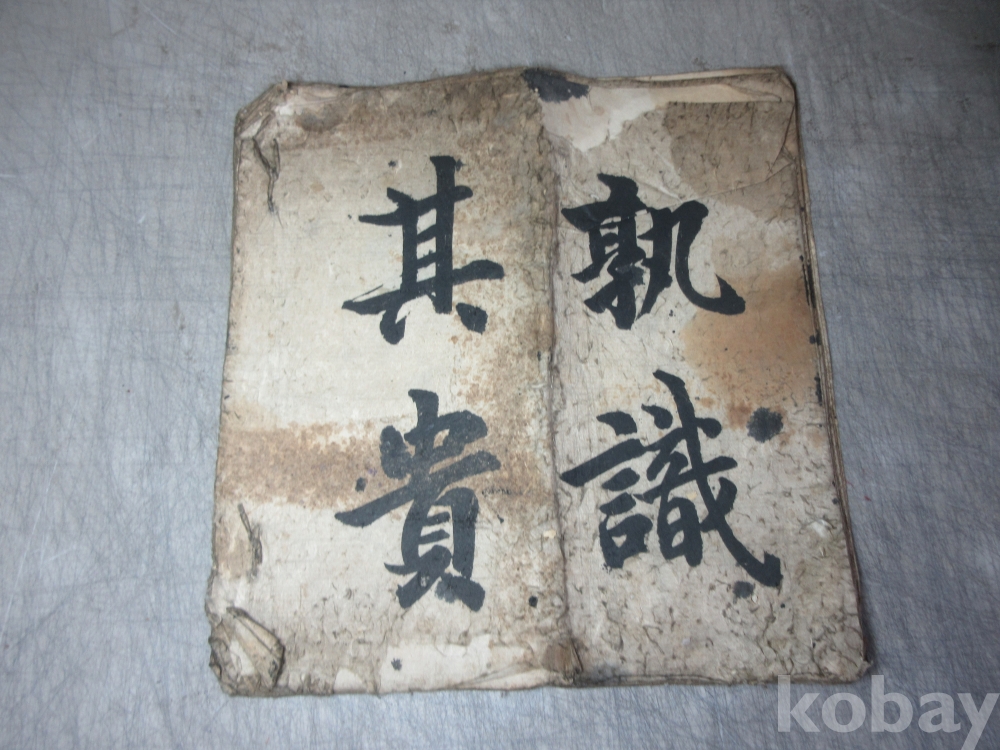 孰識
其貴
kobay